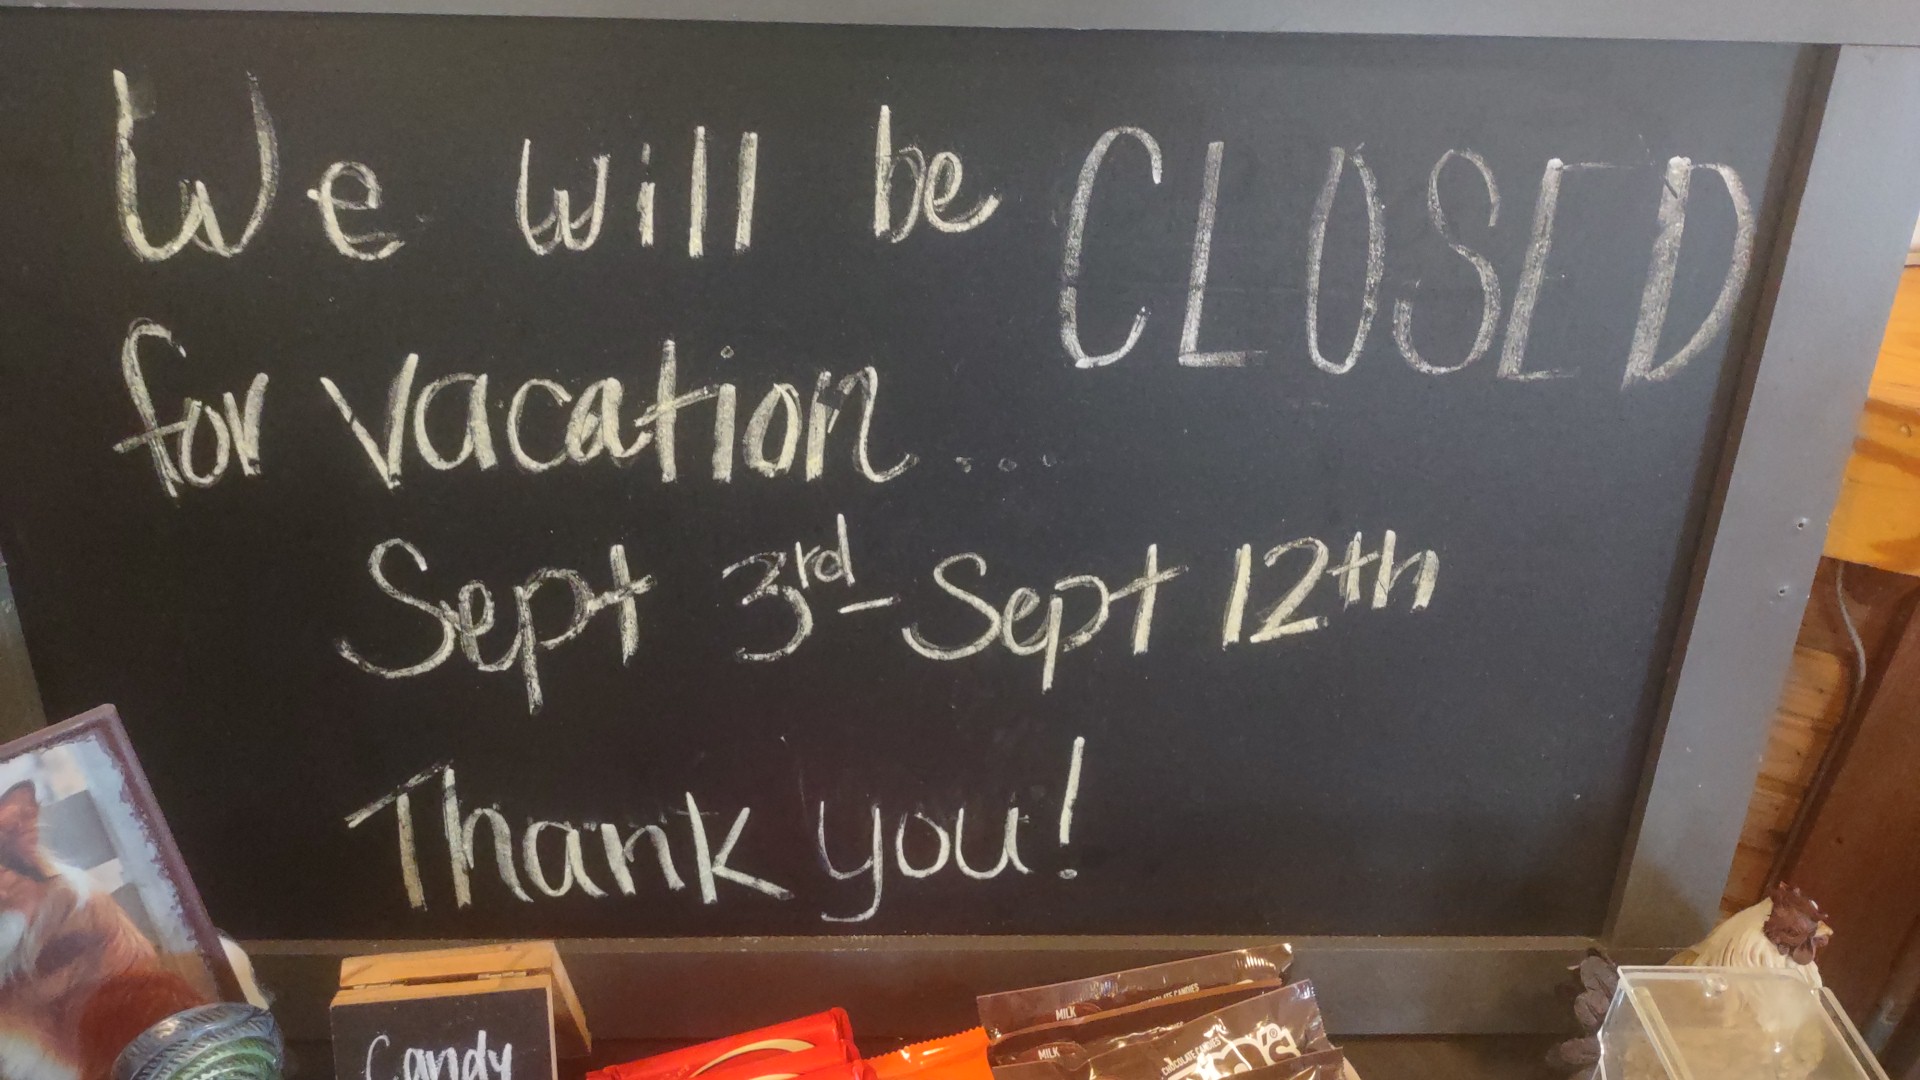 We will be CLOSED
for vacation...
Sept 3rd - Sept 12th
Thank you!
Candy
MILK
CHOCOLATE CANDIES
MILK
CHOCOLATE CANDIES